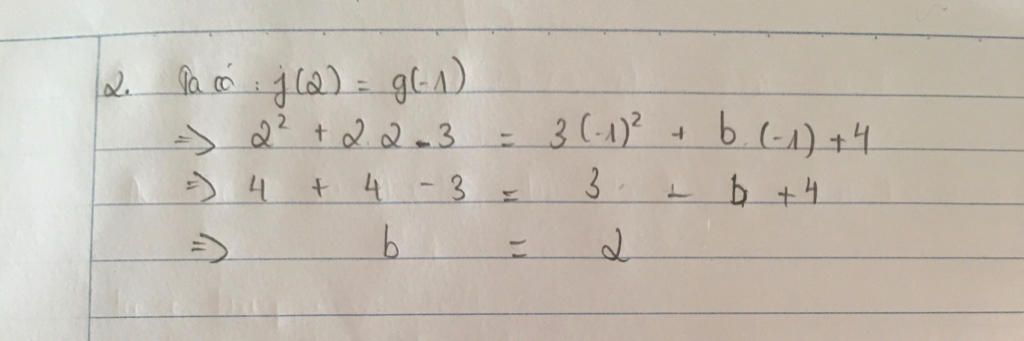 2. Ta có : j(2) = g(-1)
=> 2² + 2.2 - 3 = 3(-1)² + b.(-1) + 4
=> 4 + 4 - 3 = 3 - b + 4
=> b = 2